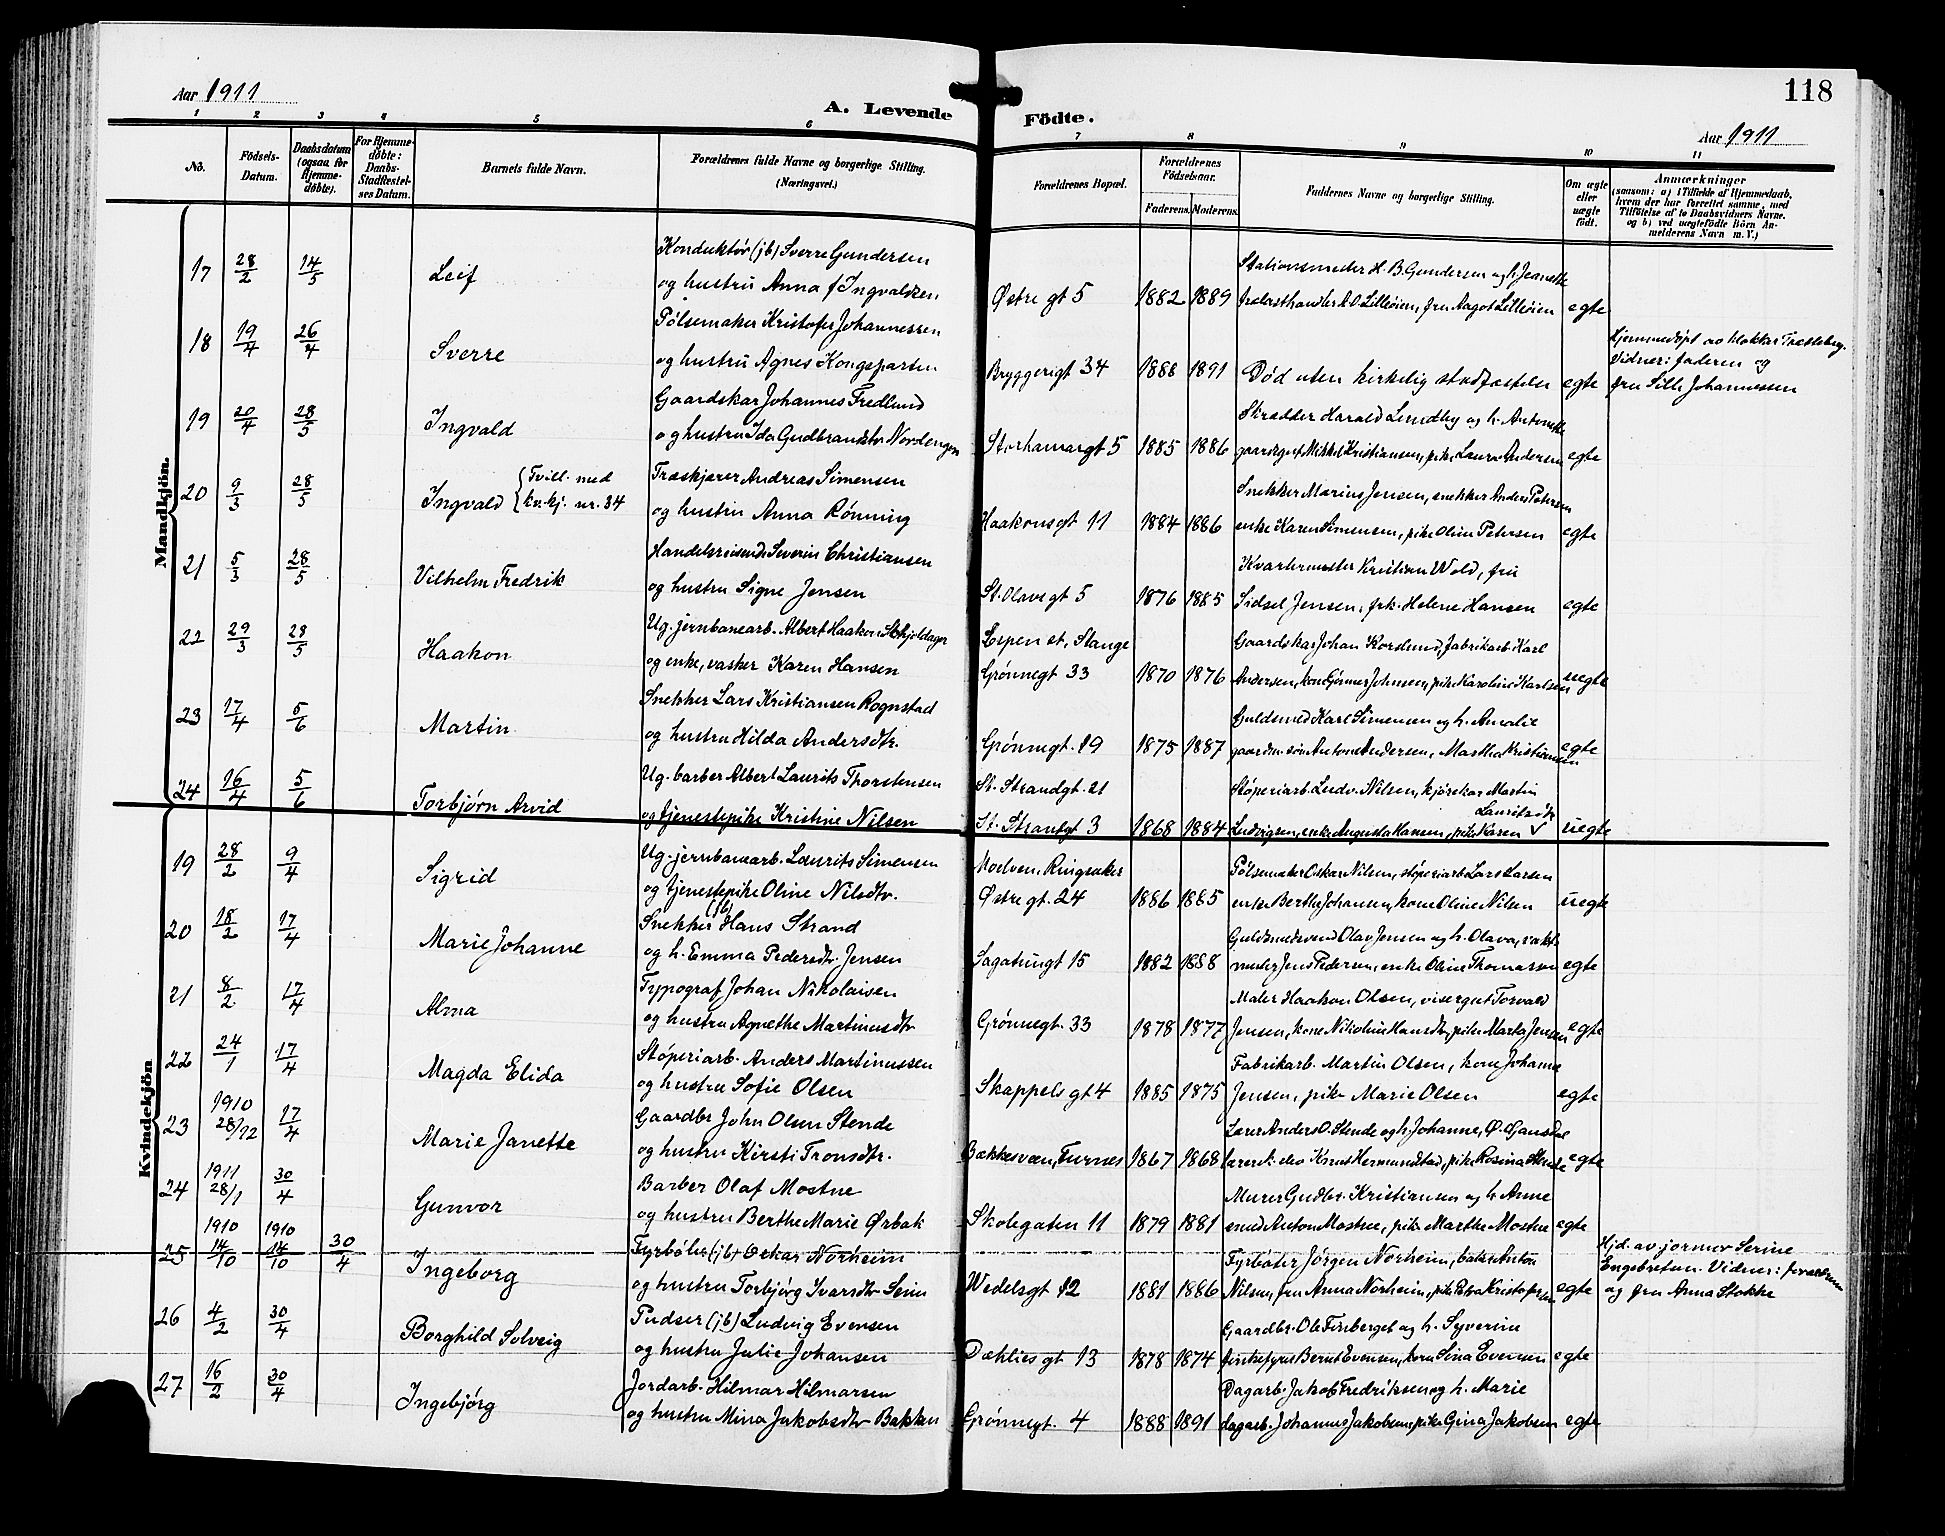 Aar 1911
A. Levende Födte.
118
Aar 1911
1 2 3 4 5 6 7 8 9 10 11
No.
Födsels-Datum.
Daabsdatum (ogsaa for Hjemmedöbte).
For Hjemmedöbte: Daabs-Stadfestelses Datum.
Barnets fulde Navn.
Forældrenes fulde Navne og borgerlige Stilling. (Næringsvei.)
Forældrenes Bopæl.
Forældrenes Födselsaar.
Faderens. Moderens.
Faddernes Navne og borgerlige Stilling.
Om ægte eller uægte födt.
Anmærkninger
(saasom: a) i Tilfælde af Hjemmedaab, hvem der har forrettet samme, med Tilföielse af to Daabsvidners Navne, og b) ved uægtefödte Börn Anmelderens Navn m. V.)
Mandkjön.
17 28/2 14/5 Leif
Konduktør (jb) Sverre Gundersen
og hustru Anna f Ingvaldsen
Østre gt 5 1882 1889
Stationsmester H. B. Gundersen og h. Jeanette
A. O. Lilleöien, fru Aagot Lilleöien egte
18 19/4 26/4 Sverre
Pölsemaker Kristofer Johannessen
og hustru Agnes Kongsparten
Bryggerigt 34 1888 1891
Död uten kirkelig stadfæstelse egte
Hjemmedöpt av klokker Tretteberg.
Vidner: faderen og
fru Sille Johannessen
19 20/4 28/5 Ingvald
Gaardskar Johannes Fredlund
og hustru Ida Gudbrandsdtr Nordengen
Storhamargt 5 1885 1886
Skrædder Harald Lundby og h. Antonette
Mikkel Kristiansen, pike Laura Andersen egte
20 9/3 28/5 Ingvald {Tvill. med kv.kj. nr. 34
Træskjærer Andreas Simensen
og hustru Anna Rönning
Haakonsgt 11 1884 1886
Snekker Marius Jensen, snekker Anders Petersen
enke Karen Simensen, pike Oline Petersen egte
21 5/3 28/5 Vilhelm Fredrik
Handelsreisende Severin Christiansen
og hustru Signe Jensen
St. Olavs gt 5 1876 1885
Kvartermester Kristian Wold, fru
Sidsel Jensen, frk. Helene Hansen egte
22 29/3 28/5 Haakon
Ug. jernbanearb. Albert Haakon Skjoldager
og enke, vasker Karen Hansen
Espen st, Stange
Grönnegt 33 1870 1876
Gaardskar Johan Korslund, fabrikarb Karl
Andersen, kone Gunnar Johnsen, pike Karoline Karlsen uegte
23 17/4 5/6 Martin
Snekker Lars Kristiansen Rognstad
og hustru Hilda Andersdtr.
Grönnegt. 19 1875 1887
Guldsmed Karl Simensen og h. Amalie
gaardm. sön Anton Andersen, Martha Kristiansen egte
24 16/4 5/6 Torbjörn Arvid
Ug. barber Albert Laurits Thorstensen
og tjenestepike Kristine Nilsen
St. Strandgt. 21
St. Strandgt 3 1868 1884
Stöperiarb. Ludv. Nilsen, kjörekar Martin
Ludvigsen, enke Augusta Hansen, pike Karen Lauritsdtr uegte
Kvindekjön
19 28/2 9/4 Sigrid
Ug. jernbanearb. Laurits Simensen
og tjenestepike Oline Nilsdtr.
Moelven, Ringsaker
Østre gt. 24 1886 1885
Pölsemaker Oskar Nilsen, stöperiarb Lars Larsen
enke Berthe Johansen, kone Oline Nilsen uegte
20 18/2 17/4 Marie Johanne
Snekker (jb) Hans Strand
og h. Emma Pedersdtr. Jensen
Sagatungt 15 1882 1888
Guldsmedsvend Olav Jensen og h. Olava, vakt-
mester Jens Pedersen, enke Oline Thomassen egte
21 8/2 17/4 Alma
Typograf Johan Nikolaisen
og hustru Agnethe Martinusdtr
Grönnegt. 33 1878 1877
Maler Haakon Olsen, visergut Torvald
Jensen, kone Nikoline Hansdtr, pike Marta Jensen egte
22 24/1 17/4 Magda Elida
Stöperiarb. Anders Martinussen
og hustru Sofie Olsen
Skappels gt 4 1885 1875
Fabrikarb. Martin Olsen, kone Johanne
Jensen, pike Marie Olsen egte
23 1910 28/12 17/4 Marie Janette
Gaardbr John Olsen Stende
og hustru Kirsti Tronsdtr.
Bækkesvæen, Furnes 1867 1868
Lærer Anders O. Stende og h. Johanne, Ø. Gausdal
lærersk. elev Knut Hermundstad, pike Rosina Stende egte
24 1911 28/1 30/4 Gunvor
Barber Olaf Mostue
og hustru Berthe Marie Ørbæk
Skolegaten 11 1879 1881
Murer Gudbr. Kristiansen og h. Anne
smed Anton Mostue, pike Marthe Mostue egte
25 1910 14/10 1910 14/10 30/4 Ingeborg
Fyrböter (jb) Oskar Norheim
og hustru Torbjörg Ivarsdtr Seim
Wedelsgt 12 1881 1886
Fyrböter Jörgen Norheim, baker Anton
Nilsen, fru Anna Norheim, pike Petra Kristofersen egte
Hjd. av jormor Serine
Engebretsen. Vidner: forældrene
og fru Anna Stokke
26 4/2 30/4 Borghild Solveig
Pudser (jb) Ludvig Evensen
og hustru Julie Johansen
Dæhlies gt 13 1878 1874
Gaardbr. Ole Finberget og h. Syverine
Bernt Evensen, kone Sina Evensen egte
27 16/2 30/4 Ingebjörg
Jordarb. Hilmar Hilmarsen
og hustru Mina Jakobsdtr Bakken
Grönnegt. 4 1888 1891
Dagarb. Jakob Fredriksen og h. Marie
dagarb. Johannes Jakobsen, pike Gina Jakobsen egte